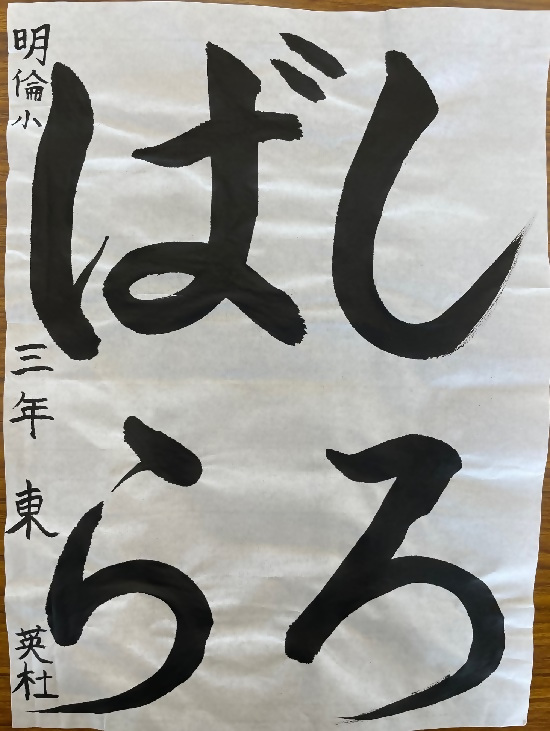 しろ
ばら
明倫小 三年 東 英杜